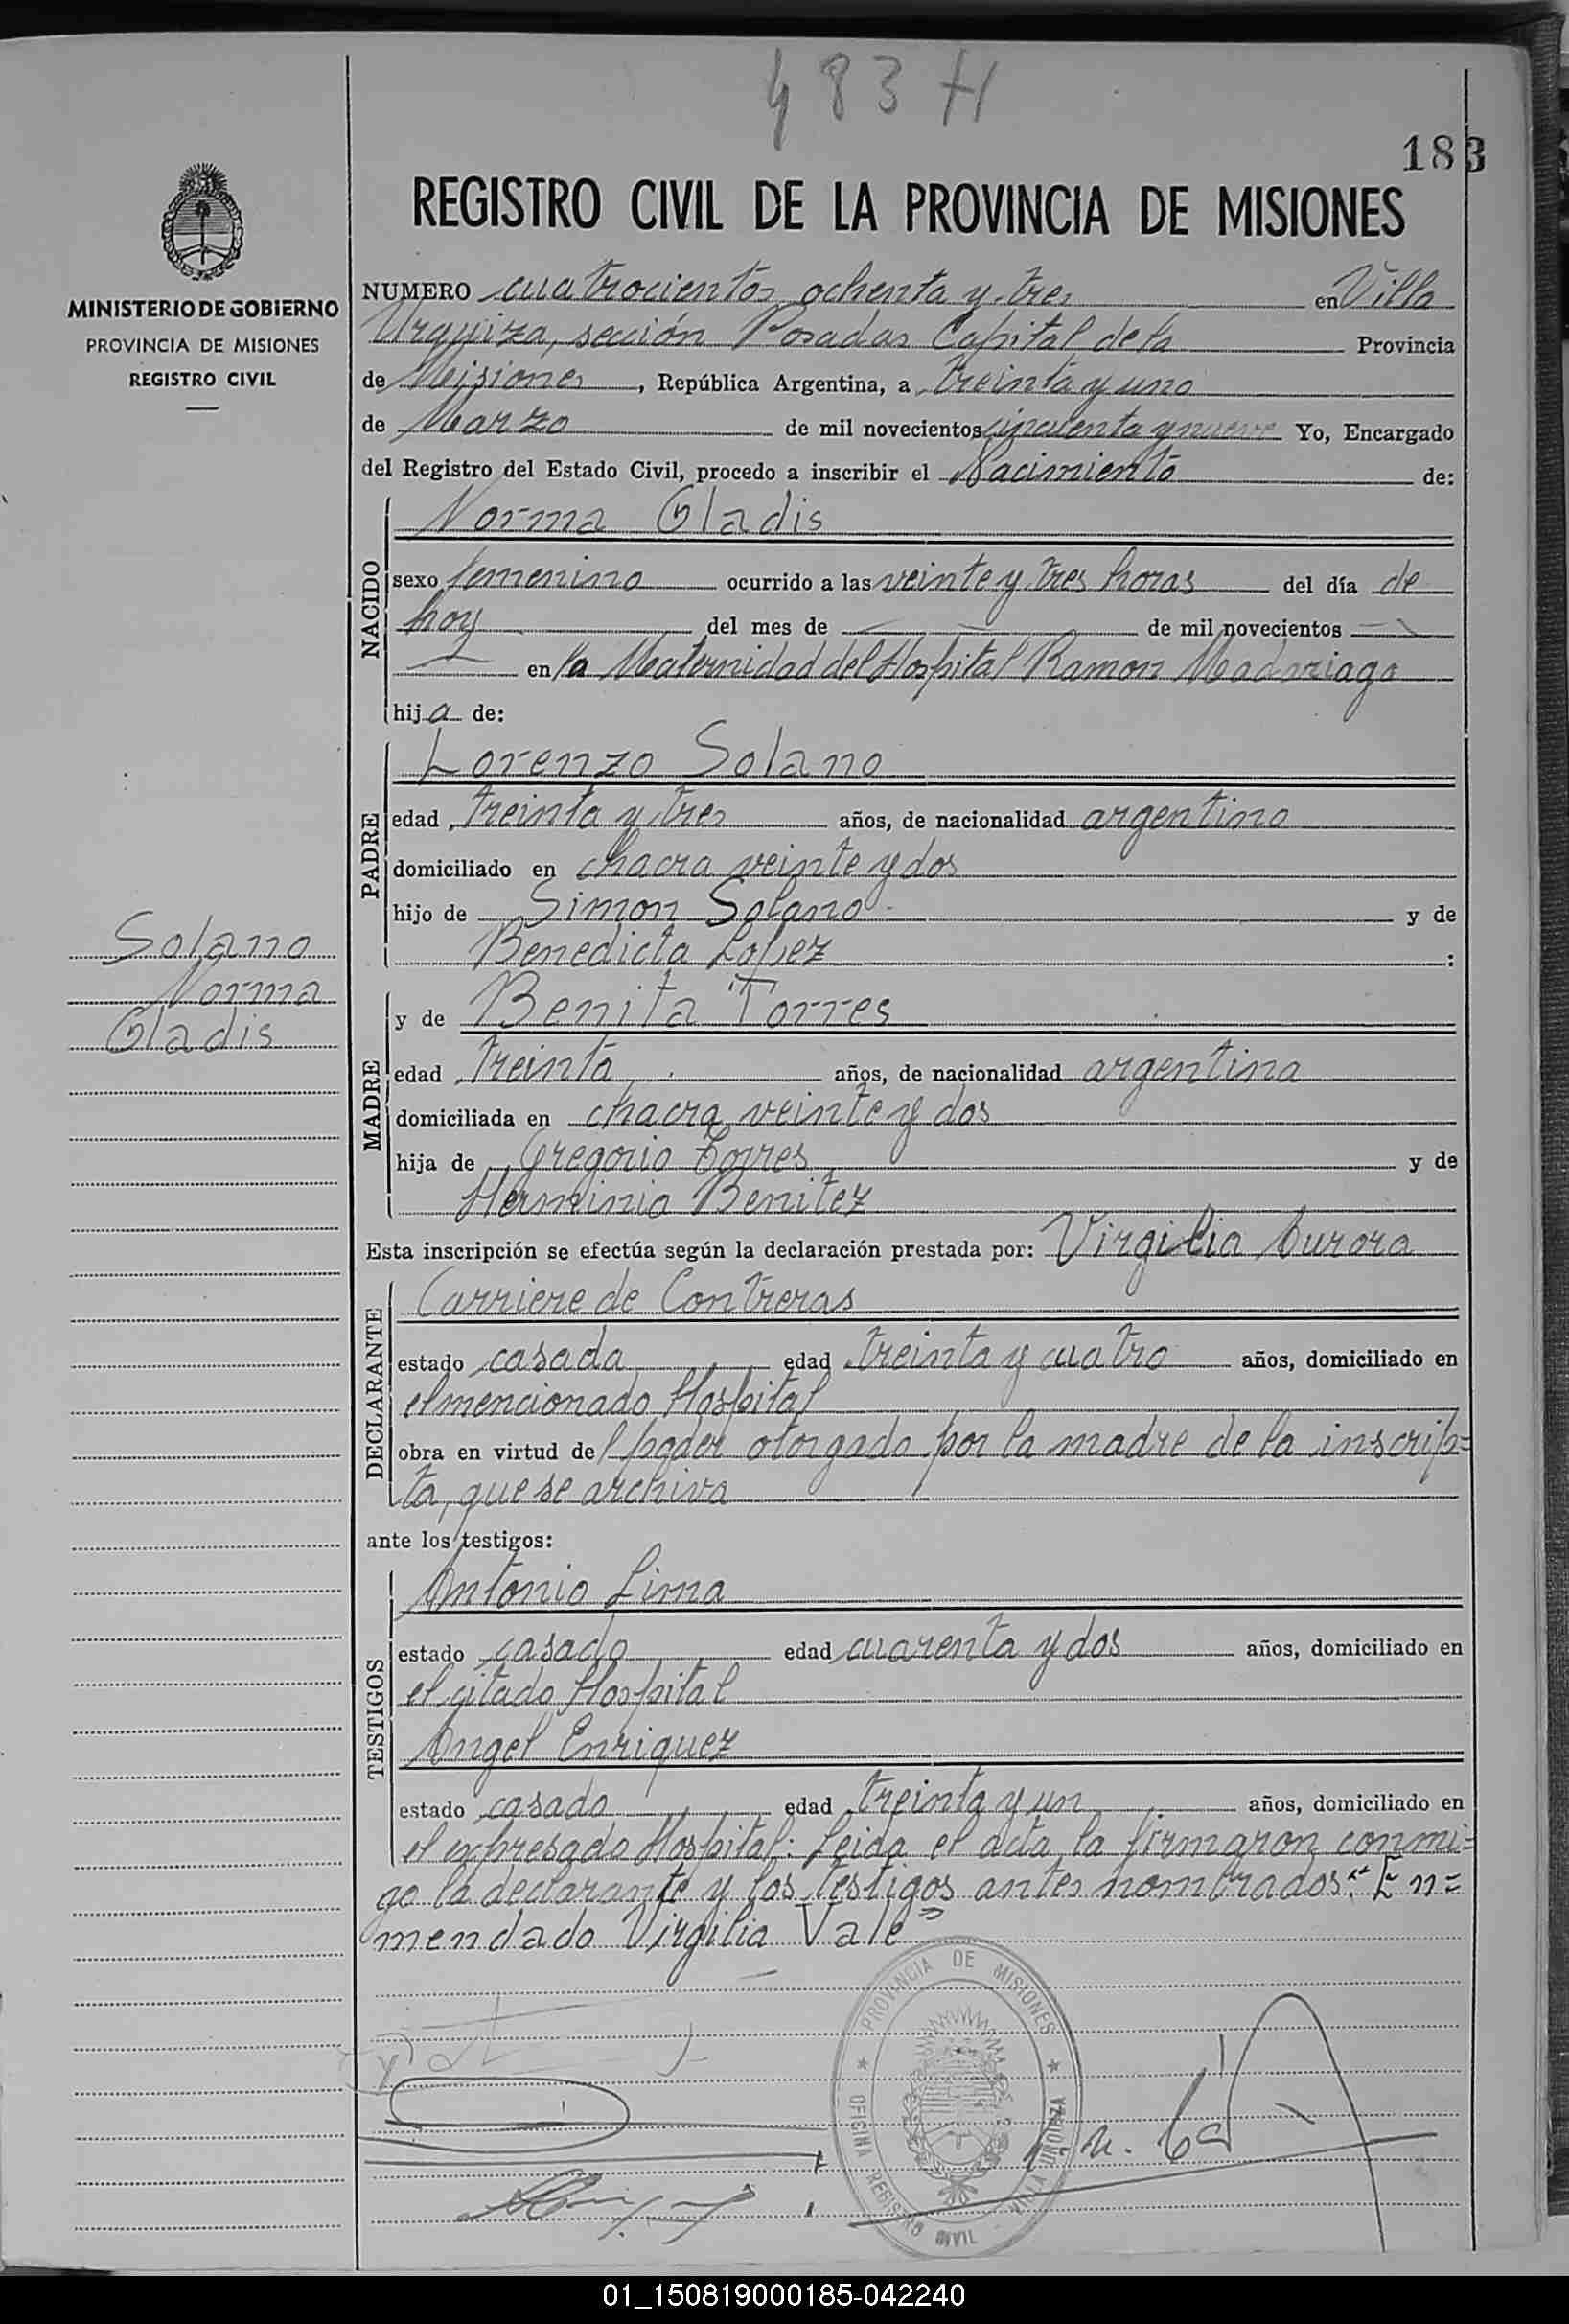 483 H
183
REGISTRO CIVIL DE LA PROVINCIA DE MISIONES
MINISTERIO DE GOBIERNO
PROVINCIA DE MISIONES
REGISTRO CIVIL
NUMERO cuatrocientos ochenta y tres en Villa
Urquiza, sección Posadas Capital de la Provincia
de Misiones, República Argentina, a treinta y uno
de Marzo de mil novecientos cincuenta y nueve Yo, Encargado
del Registro del Estado Civil, procedo a inscribir el Nacimiento de:
NACIDO
Norma Gladis
sexo femenino ocurrido a las veinte y tres horas del día de
hoy del mes de — de mil novecientos —
— en la Maternidad del Hospital Ramon Madariaga
hija de:
PADRE
Lorenzo Solano
edad treinta y tres años, de nacionalidad argentino
domiciliado en chacra veinte y dos
hijo de Simon Solano y de
Benedicta Lopez :
Solano
Norma
Gladis
MADRE
y de Benita Torres
edad treinta años, de nacionalidad argentina
domiciliada en chacra veinte y dos
hija de Gregorio Torres y de
Herminia Benitez
Esta inscripción se efectúa según la declaración prestada por: Virgilia Aurora
DECLARANTE
Carriere de Contreras
estado casada edad treinta y cuatro años, domiciliado en
el mencionado Hospital
obra en virtud del poder otorgado por la madre de la inscrip=
ta, que se archiva
ante los testigos:
TESTIGOS
Antonio Lima
estado casado edad cuarenta y dos años, domiciliado en
el citado Hospital
Angel Enriquez
estado casado edad treinta y un años, domiciliado en
el expresado Hospital: Leida el acta, la firmaron conmi=
go la declarante y los testigos antes nombrados." En=
mendado Virgilia Vale"
PROVINCIA DE MISIONES
OFICINA REGISTRO CIVIL - VILLA URQUIZA
01_150819000185-042240